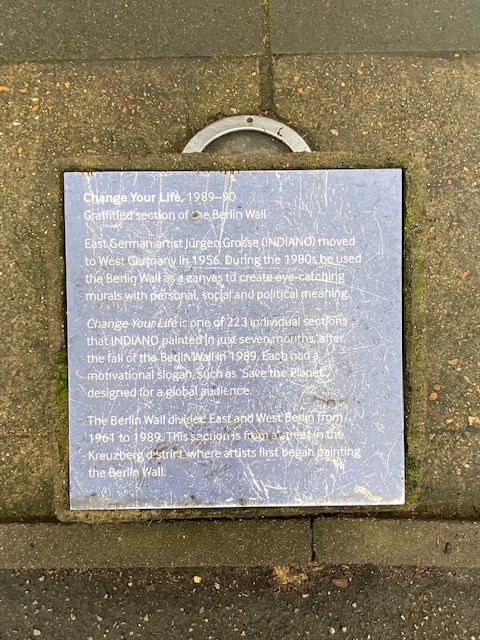 Change Your Life, 1989–90
Graffitied section of the Berlin Wall
East German artist Jürgen Grosse (INDIANO) moved
to West Germany in 1956. During the 1980s he used
the Berlin Wall as a canvas to create eye-catching
murals with personal, social and political meaning.
Change Your Life is one of 223 individual sections
that INDIANO painted in just seven months, after
the fall of the Berlin Wall in 1989. Each had a
motivational slogan, such as 'Save the Planet',
designed for a global audience.
The Berlin Wall divided East and West Berlin from
1961 to 1989. This section is from a street in the
Kreuzberg district, where artists first began painting
the Berlin Wall.